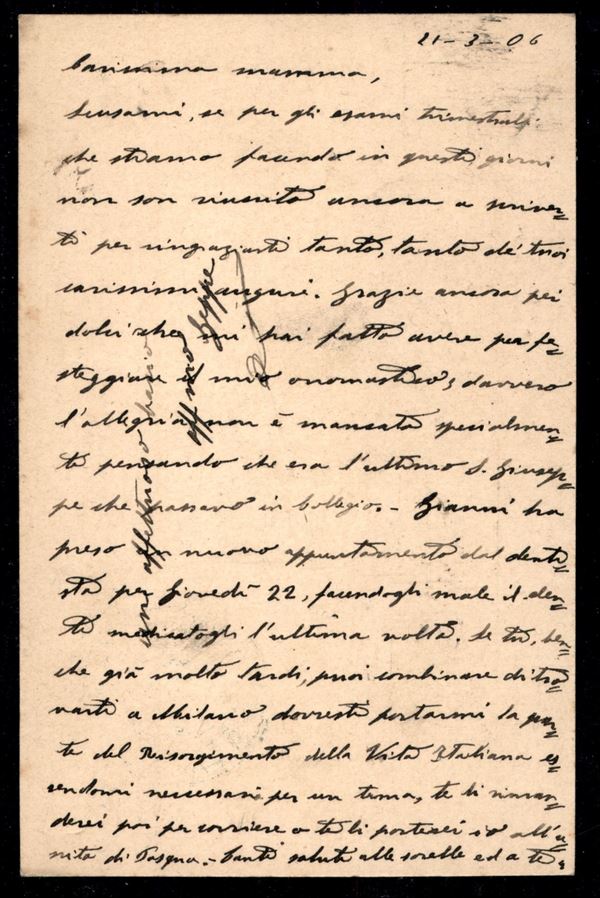 21-3-06
Carissima mamma,
Scusami, se per gli esami trimestrali
che stiamo facendo in questi giorni
non son riuscito ancora a scriver=
ti per ringraziarti tanto, tanto de' tuoi
carissimi auguri. Grazie ancora pei
dolci che mi hai fatto avere per fe=
steggiare il mio onomastico; davvero
l'allegria non è mancata specialmen=
te pensando che era l'ultimo S. Giusep=
pe che passavo in Collegio. - Gianni ha
preso un nuovo appuntamento dal denti=
sta per Giovedì 22, facendogli male il den=
te medicatogli l'ultima volta. Se tu, ben=
che già molto tardi, puoi combinare di tro=
varti a Milano dovresti portarmi la par=
te del Risorgimento della Vita Italiana es=
sendomi necessari per un tema, te li riman=
derei poi per corriere o te li porterei io all'u=
scita di Pasqua. - Tanti saluti alle sorelle ed a te
un affettuoso bacio
aff mo Beppe